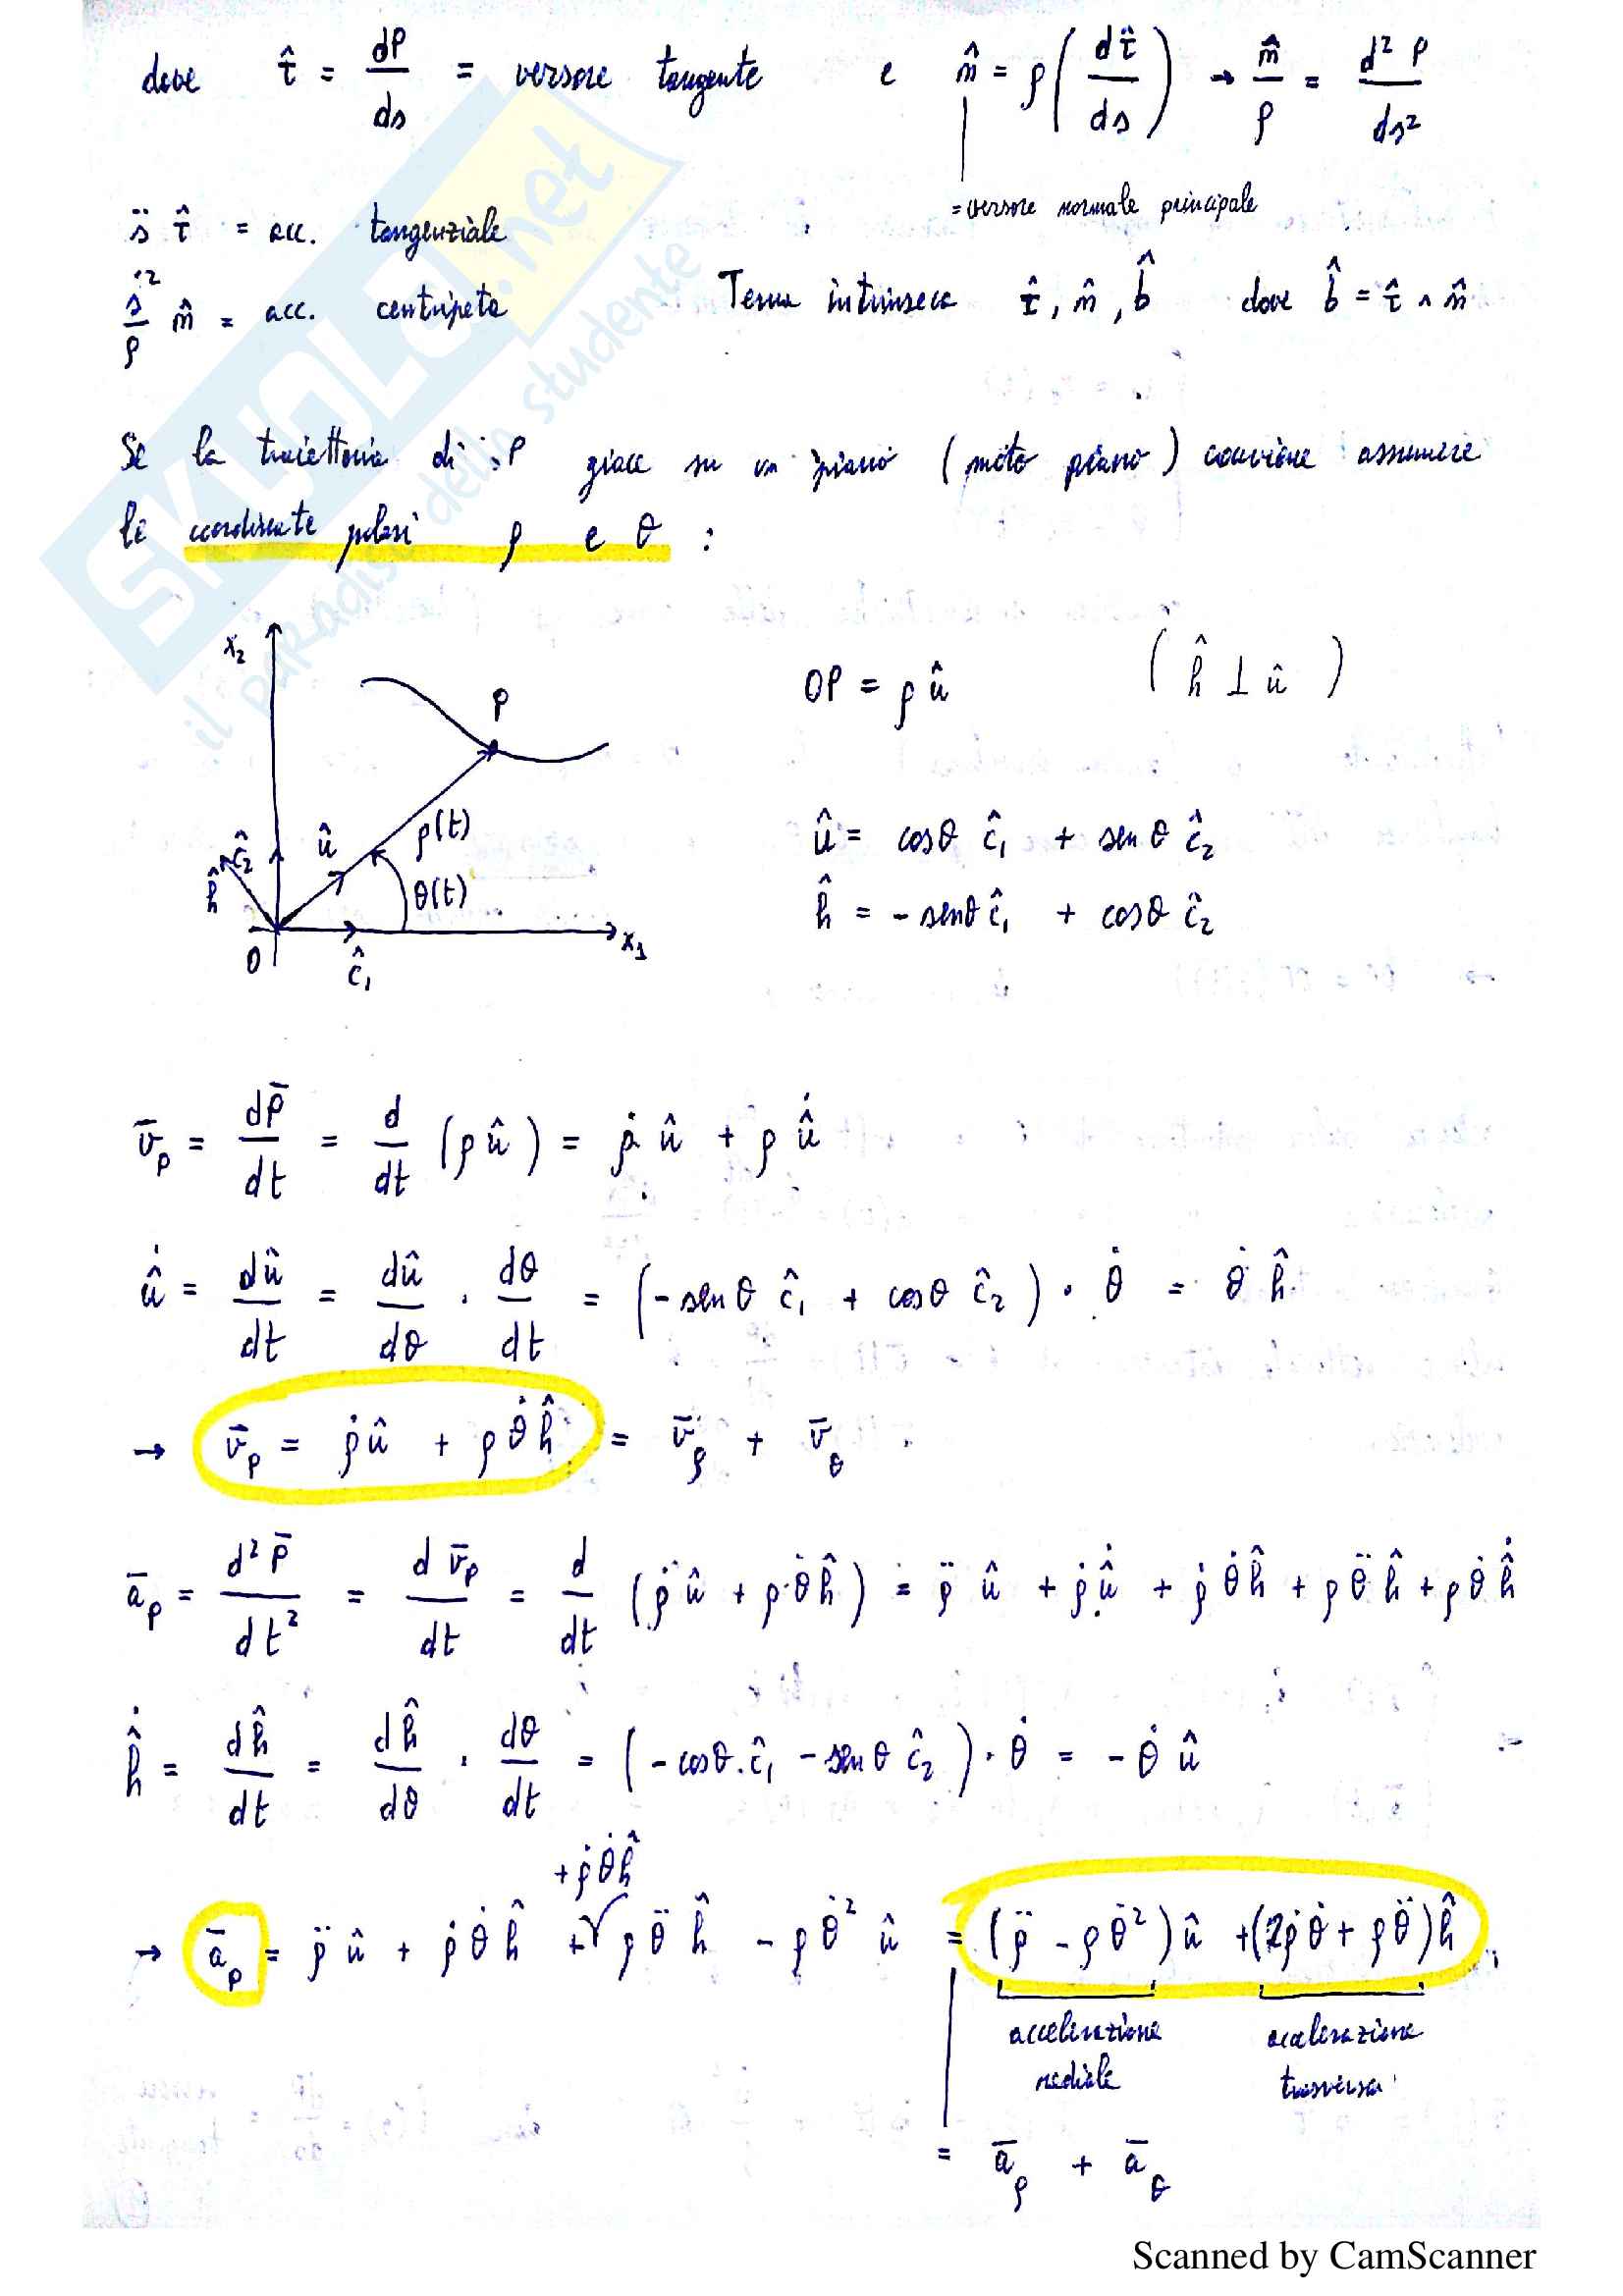 dove τ̂ = dP/ds = versore tangente e n̂ = ρ(dτ̂/ds) → n̂/ρ = d²P/ds²
= versore normale principale
s̈ τ̂ = acc. tangenziale
ṡ²/ρ n̂ = acc. centripeta Terna intrinseca τ̂, n̂, b̂ dove b̂ = τ̂ ∧ n̂
Se la traiettoria di P giace su un piano (moto piano) conviene assumere
le coordinate polari ρ e θ :
x₂
P
OP = ρ û ( ĥ ⊥ û )
ρ(t)
û
ĉ₂
ĥ
θ(t)
û = cosθ ĉ₁ + senθ ĉ₂
ĥ = - senθ ĉ₁ + cosθ ĉ₂
O ĉ₁ x₁
v̄_P = dP̄/dt = d/dt (ρ û) = ρ̇ û + ρ û̇
û̇ = dû/dt = dû/dθ · dθ/dt = (- senθ ĉ₁ + cosθ ĉ₂) · θ̇ = θ̇ ĥ
→ v̄_P = ρ̇ û + ρ θ̇ ĥ = v̄_ρ + v̄_θ
ā_P = d²P̄/dt² = d v̄_P/dt = d/dt (ρ̇ û + ρ θ̇ ĥ) = ρ̈ û + ρ̇ û̇ + ρ̇ θ̇ ĥ + ρ θ̈ ĥ + ρ θ̇ ĥ̇
ĥ̇ = dĥ/dt = dĥ/dθ · dθ/dt = (- cosθ ĉ₁ - senθ ĉ₂) · θ̇ = - θ̇ û
+ ρ̇ θ̇ ĥ
→ ā_P = ρ̈ û + ρ̇ θ̇ ĥ + ρ θ̈ ĥ - ρ θ̇² û = (ρ̈ - ρ θ̇²) û + (2ρ̇ θ̇ + ρ θ̈) ĥ
accelerazione radiale
accelerazione trasversa
= ā_ρ + ā_θ
SKUOLA.net
il paradiso dello studente
Scanned by CamScanner